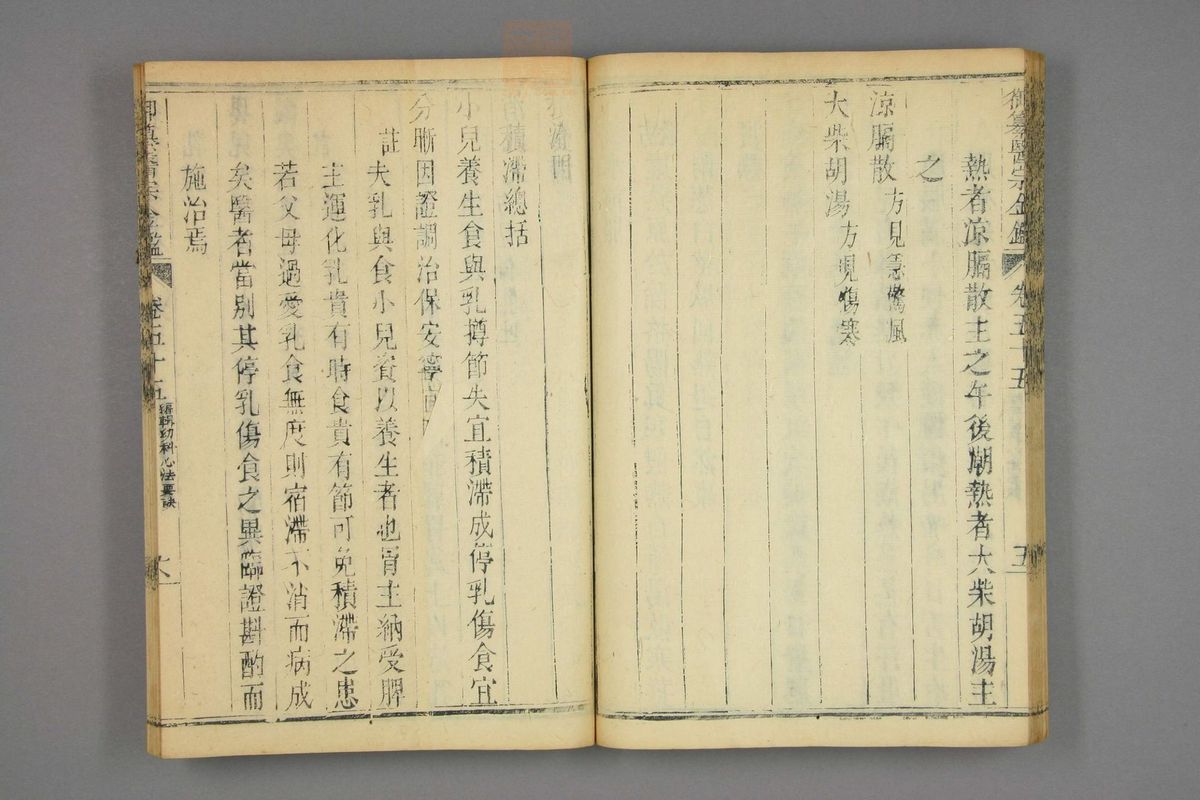 御纂醫宗金鑑 卷五十五 五
熱者涼膈散主之午後潮熱者大柴胡湯主
之
涼膈散 方見急驚風
大柴胡湯 方見傷寒
積滯門
積滯總括
小兒養生食與乳撙節失宜積滯成停乳傷食宜
分晰因證調治保安寧
註 夫乳與食小兒資以養生者也胃主納受脾
主運化乳貴有時食貴有節可免積滯之患
若父母過愛乳食無度則宿滯不消而病成
矣醫者當別其停乳傷食之異臨證斟酌而
施治焉
御纂醫宗金鑑 卷五十五 編輯幼科心法要訣 六